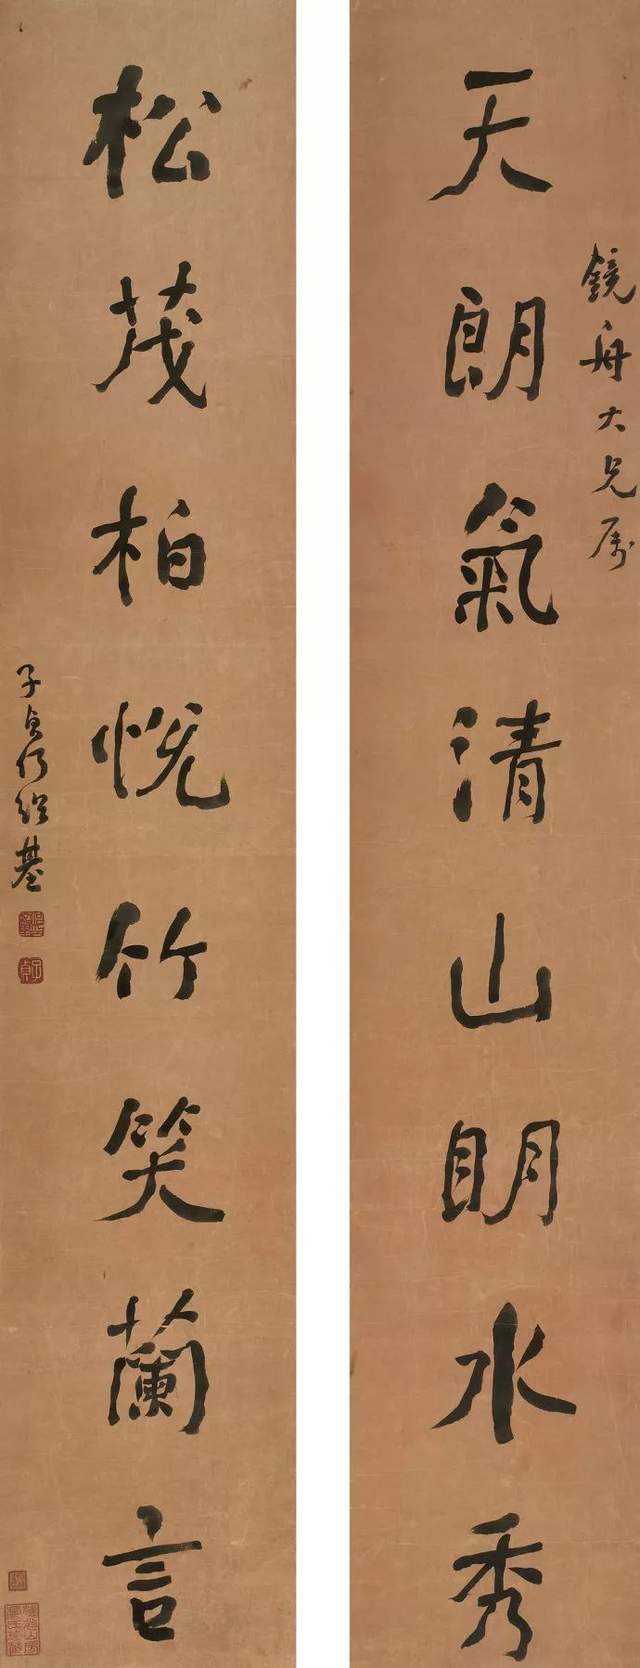 鏡舟大兄属
天朗氣清山明水秀
松茂柏悅竹笑蘭言
子貞何紹基